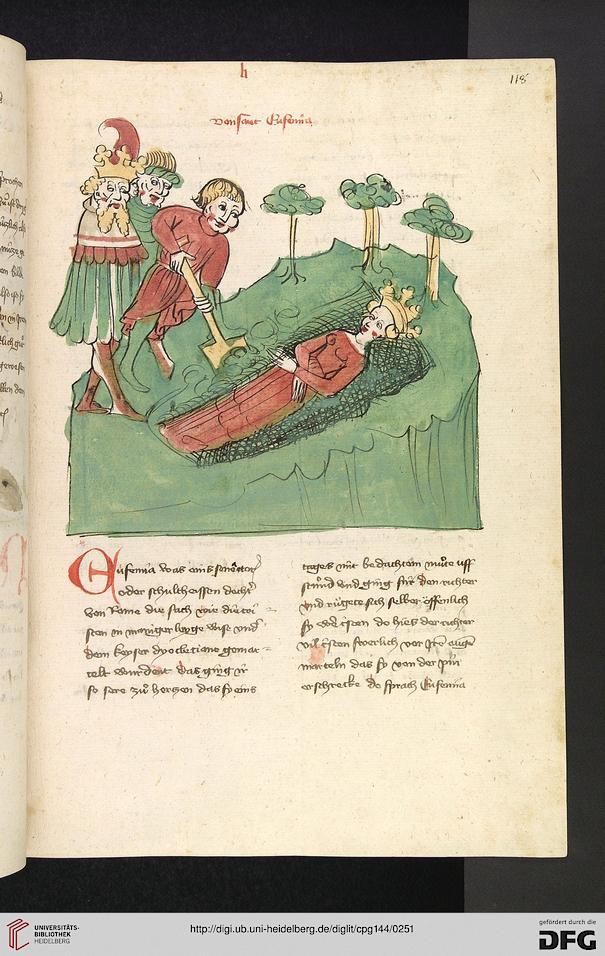 h
118
von sant Eufemia
Eufemia was eins senattor
oder schultheissen dochter
von Rome die sach wie die cri
sten in maniger leyge wise und
dem keyser dyocletiane gemar
telt wurdent das ging ir
so sere zu hertzen das sy eins
tages mit bedachtem mute uff
stund und ging für den richter
und rugete sich selber offenlich
sy wer cristen do hies der richter
vil cristen swerlich vor jren augen
marteln das sy von der pin
erschrecke do sprach Eufemia
UNIVERSITÄTS-
BIBLIOTHEK
HEIDELBERG
http://digi.ub.uni-heidelberg.de/diglit/cpg144/0251
gefördert durch die
DFG